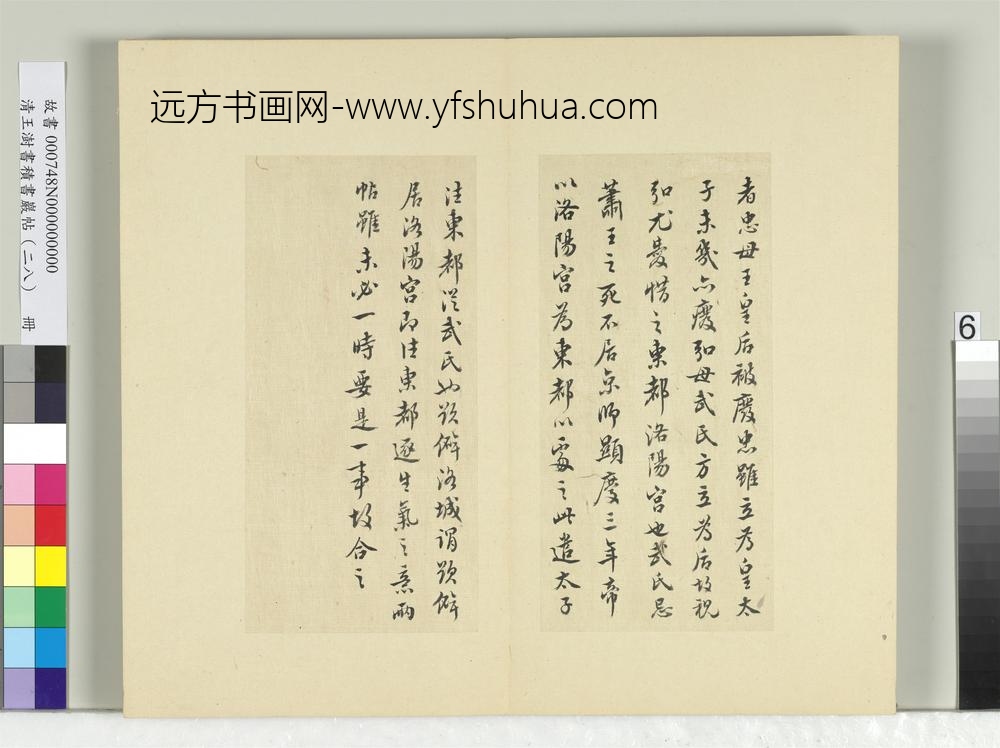 远方书画网-www.yfshuhua.com
故書 000748N000000000
清王澍書積書巖帖（二八） 冊
6
者忠母王皇后被廢忠雖立為皇太
子未幾亦廢弘母武氏方立為后故視
弘尤愛惜之東都洛陽宮也武氏忌
蕭王之死不居京師顯慶三年帝
以洛陽宮為東都以處之此遣太子
注東都從武氏也頭僻洛城謂頭僻
居洛陽宮即注東都逐生氣之意兩
帖雖未必一時要是一事故合之